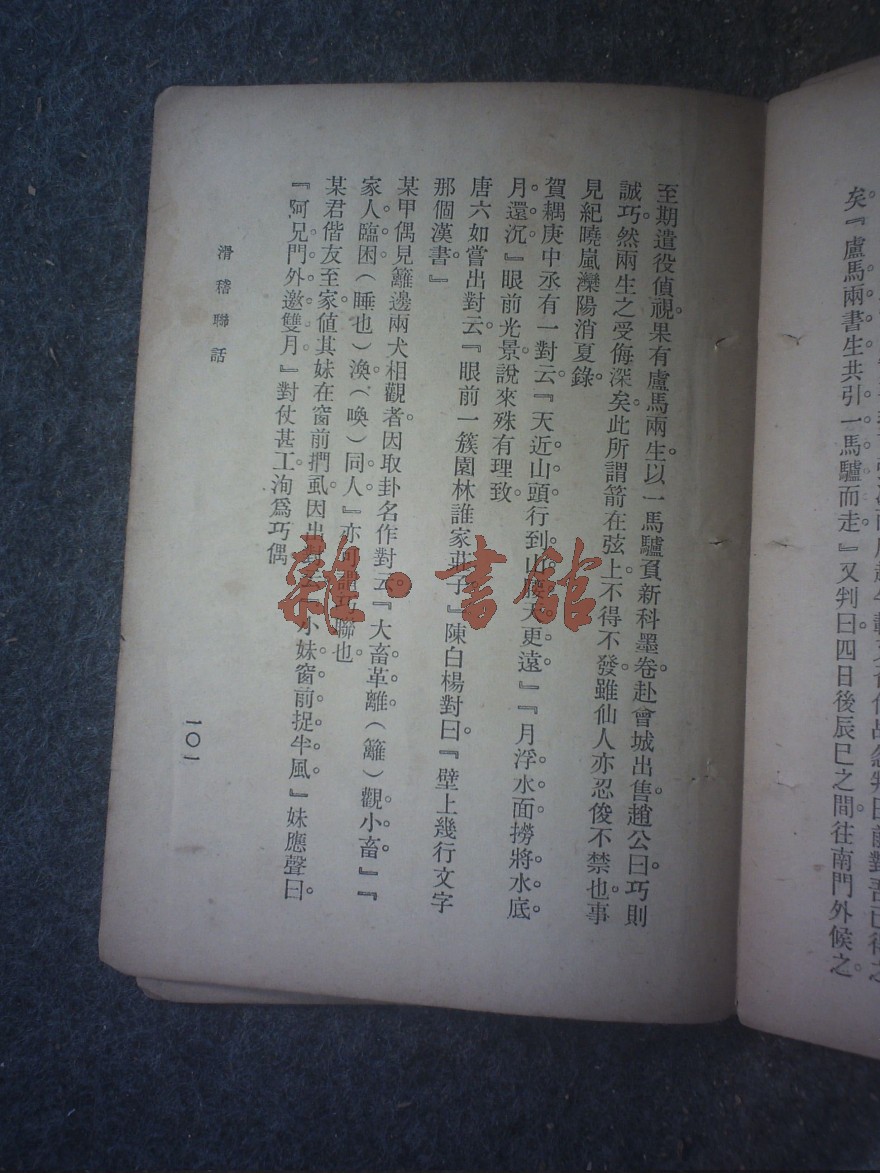 矣『盧馬兩書生共引一馬驢而走』又判曰四日後辰巳之間往南門外候之
至期遣役偵視果有盧馬兩生以一馬驢負新科墨卷赴會城出售趙公曰巧則
誠巧然兩生之受侮深矣此所謂箭在弦上不得不發雖仙人亦忍俊不禁也事
見紀曉嵐灤陽消夏錄
賀耦庚中丞有一對云『天近山頭行到山腰天更遠』『月浮水面撈將水底
月還沉』眼前光景說來殊有理致
唐六如嘗出對云『眼前一簇園林誰家莊子』陳白楊對曰『壁上幾行文字
那個漢書』
某甲偶見籬邊兩犬相觀者因取卦名作對云『大畜革離(籬)觀小畜』『
家人臨困(睡也)渙(喚)同人』亦可謂巧聯也
某君偕友至家値其妹在窗前捫虱因出對云『小妹窗前捉半風』妹應聲曰
『阿兄門外邀雙月』對仗甚工洵爲巧偶
滑稽聯話
一〇一
雜·書館